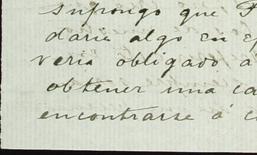 supongo que
daria algo en
veria obligado a
obtener una
encontrarse á